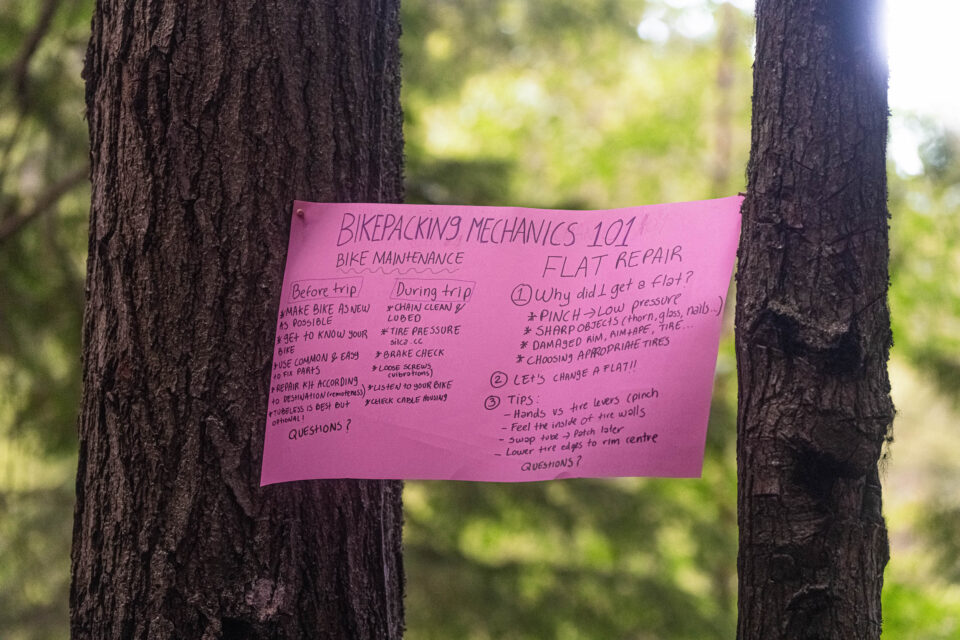 BIKEPACKING MECHANICS 101
BIKE MAINTENANCE
Before trip
* MAKE BIKE AS NEW
AS POSSIBLE
* GET TO KNOW YOUR
BIKE
* USE COMMON & EASY
TO FIX PARTS
* REPAIR KIT ACCORDING
TO DESTINATION (remoteness)
* TUBELESS IS BEST BUT
OPTIONAL!
QUESTIONS?
During trip
* CHAIN CLEAN &
LUBED
* TIRE PRESSURE
silca.cc
* BRAKE CHECK
* LOOSE SCREWS
(vibrations)
* LISTEN TO YOUR BIKE
* CHECK CABLE HOUSING
FLAT REPAIR
① Why did I get a flat?
* PINCH → Low pressure
* SHARP OBJECTS (thorn, glass, nails...)
* DAMAGED RIM, RIM TAPE, TIRE...
* CHOOSING APROPRIATE TIRES
② LET'S CHANGE A FLAT!!
③ TIPS:
- Hands vs tire levers (pinch
- Feel the inside of tire walls
- Swap tube → Patch later
- Lower tire edges to rim centre
QUESTIONS?